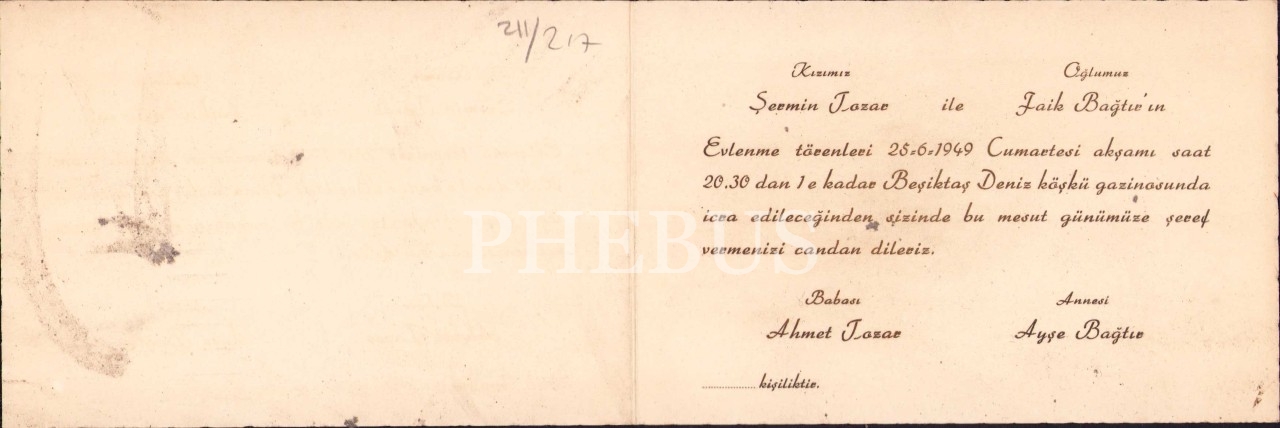 211/217
Kızımız Oğlumuz
Şermin Tozar ile Faik Bağtır'ın
Evlenme törenleri 25=6=1949 Cumartesi akşamı saat
20.30 dan 1 e kadar Beşiktaş Deniz köşkü gazinosunda
icra edileceğinden sizinde bu mesut günümüze şeref
vermenizi candan dileriz.
PHEBUS
Babası Annesi
Ahmet Tozar Ayşe Bağtır
.................. kişiliktir.